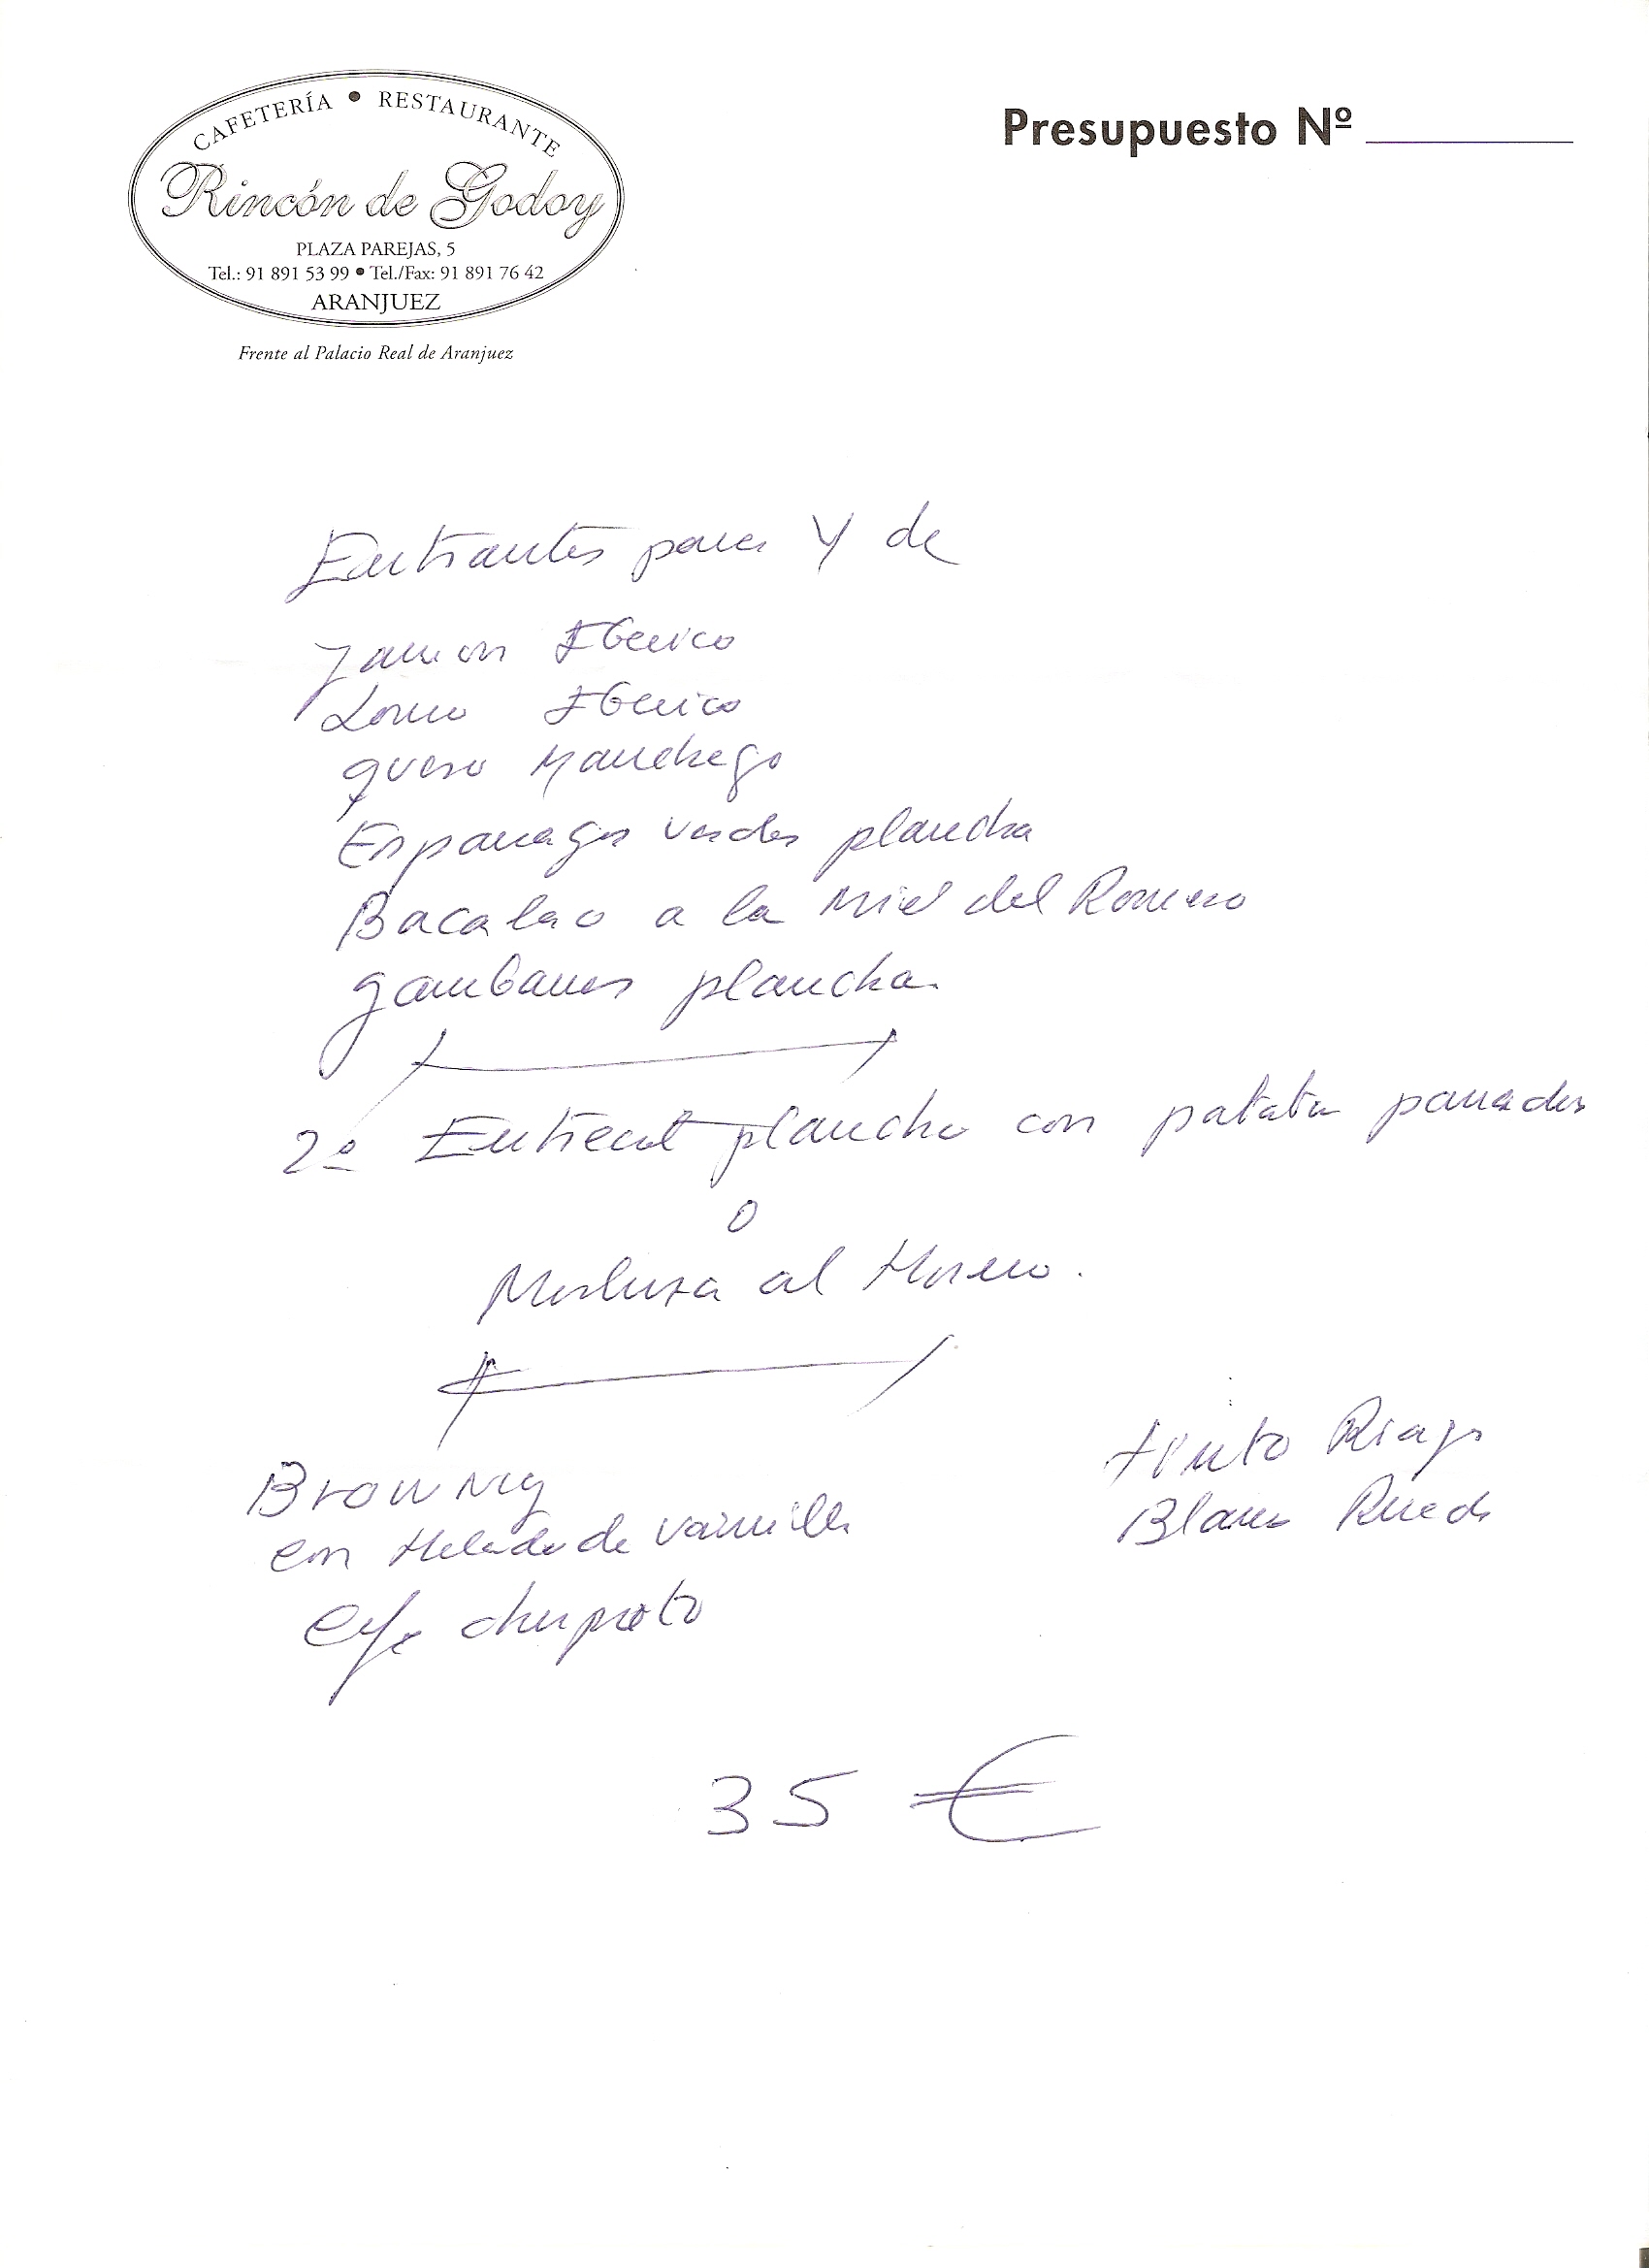 CAFETERÍA • RESTAURANTE
Rincón de Godoy
PLAZA PAREJAS, 5
Tel.: 91 891 53 99 • Tel./Fax: 91 891 76 42
ARANJUEZ
Frente al Palacio Real de Aranjuez
Presupuesto Nº
Entrantes para 4 de
Jamon Iberico
Lomo Iberico
queso Manchego
Esparragos verdes plancha
Bacalao a la Miel del Romero
gambones plancha
2º Entrecot plancha con patatas panadera
o
Merluza al Horno.
Browny
con Helado de vainilla
cafe chupito
tinto Rioja
Blanco Rueda
35 €